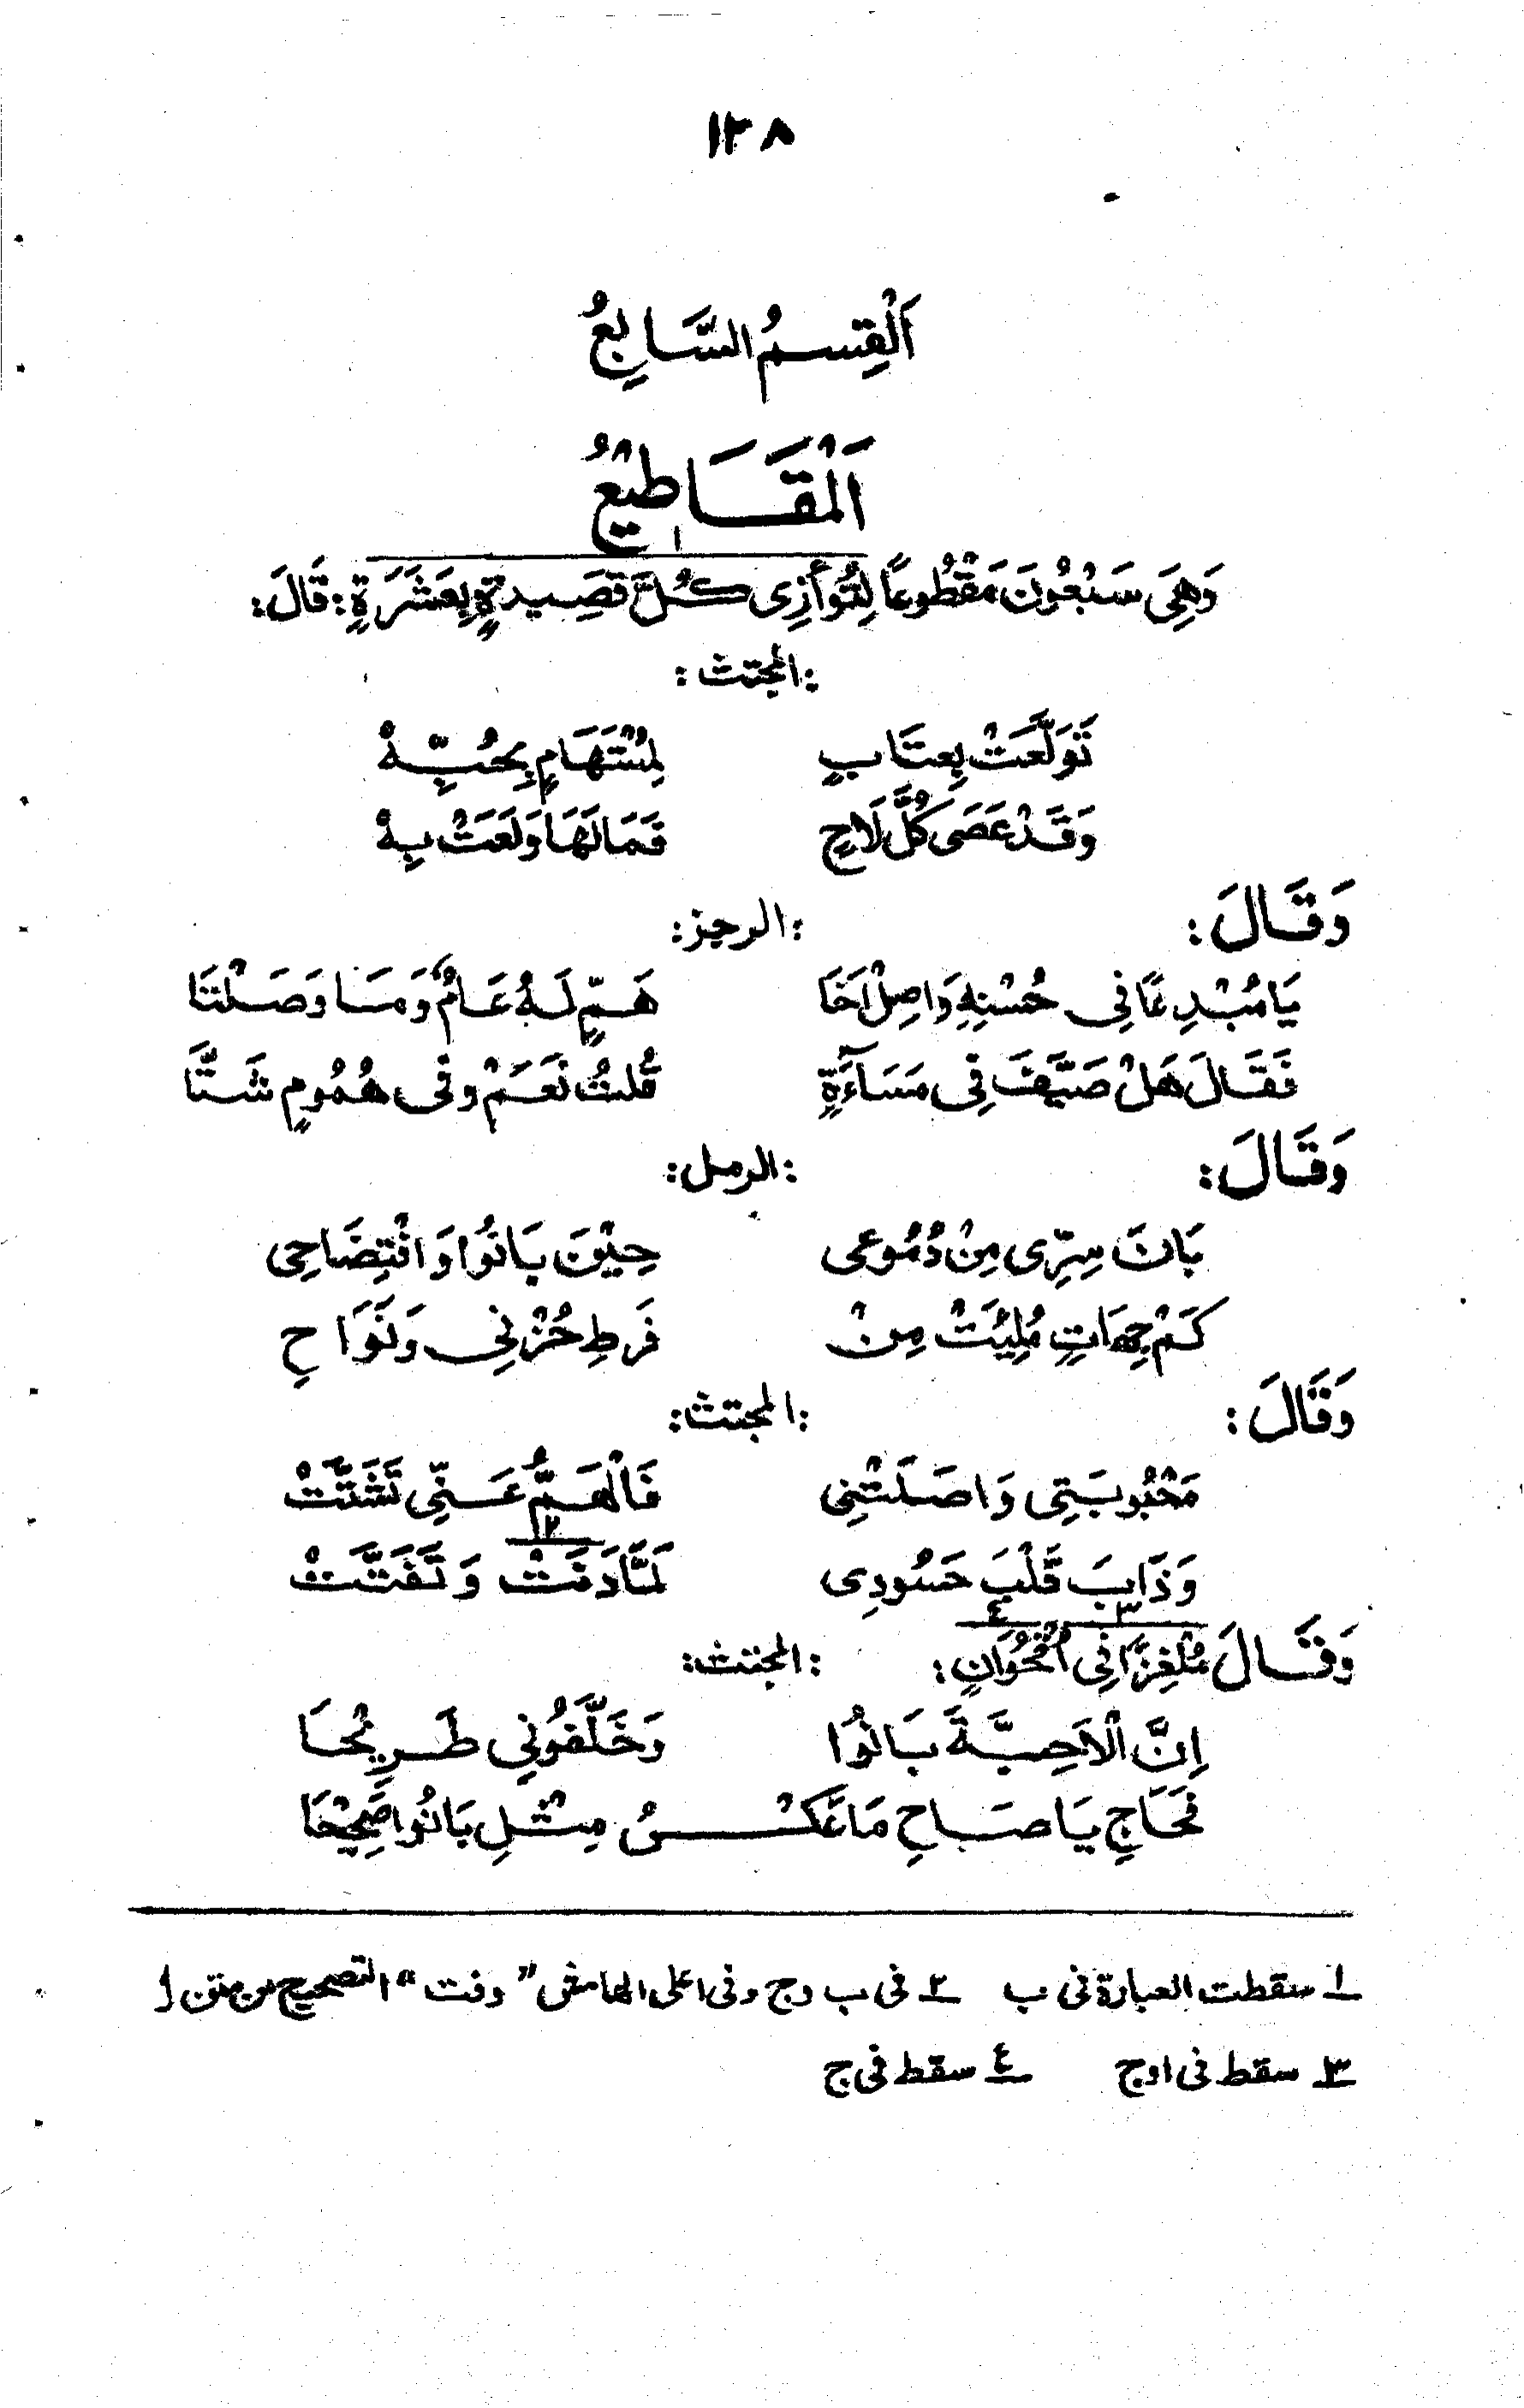 ١٢٨
اَلْقِسمُ السَّابِعُ
اَلْمَقَاطِيْعُ
وَهِيَ سَبْعُونَ مَقْطُوعًا لِتُوَأزِى كُلَّ قَصِيدةٍ بِعَشَرَةٍ: قَالَ:
:المجتث:
تَوَلَّعَتْ بِعِتَابٍ لِمُسْتَهَامٍ بِحُبِّهْ
وَقَدْ عَصَى كُلَّ لَاحٍ فَمَا لَهَا وَلَعَتْ بِهْ
وَقَالَ: :الرجز:
يَا مُبْدِعًا فِي حُسْنِهِ وَاصِلْ اَخَا هَمٍّ لَهُ عَامٌ وَمَا وَصَلْتَا
فَقَالَ هَلْ صَيَّفَ فِي مَسَآءَةٍ قُلتُ نَعَمْ وفى هُمُومٍ شَتَّا
وَقَالَ: :الرمل:
بَانَ سِرِّى مِنْ دُمُوعى حِيْنَ بَانُوا وَافْتِضَاحِى
كَمْ جِهَاتٍ مُلِيَتْ مِنْ فَرطِ حُزْنِي وَنَوَاحِ
وَقَالَ: :المجتث:
مَحْبُوبَتِى وَاصَلَتْنِى فَالْهَمُّ عَنِّى تَشَتَّتْ
وَذَابَ قَلْبَ حَسُودِى لَمَّا دَنَتْ٢ وَتَفَتَّتْ
وَقَالَ مُلْغِزًا٣ فِى اُقْحُوَانٍ٤: :المجتث:
اِنَّ الْاَحِبَّةَ بَانُوا وَخَلَّفُونِي طَرِيْحَا
فَحَاجِ يَا صَاحِ مَا عَكْسُ مِثْلِ بَانُوا صَحِيْحَا
١ سقطت العبارة فى ب ٢ فى ب وج وفى اعلى الهامش "وفت" التصحيح من متن أ
٣ سقط فى اوج ٤ سقط فى ج